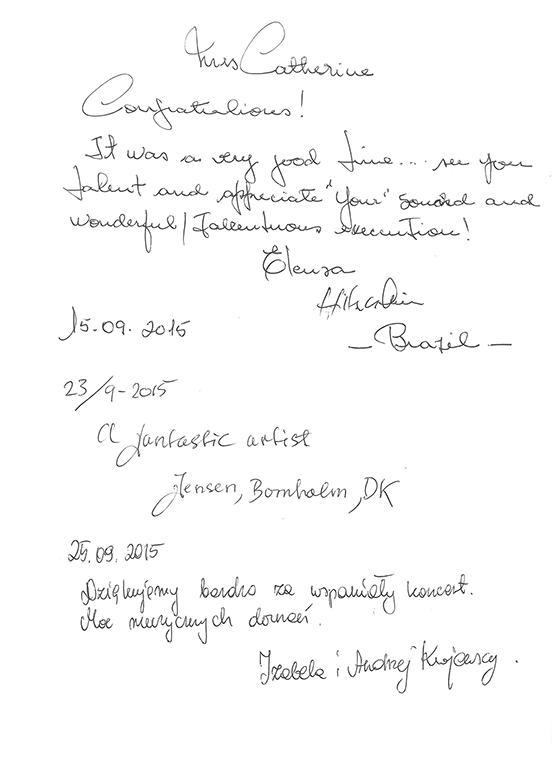 Miss Catherine
Congratulations!
It was a very good time.... see you
talent and appreciate "Your" sound and
wonderful / tallentuous execution!
Eleuza
15.09.2015
– Brazil –
23/9-2015
A fantastic artist
Jensen, Bornholm, DK
25.09.2015
Dziękujemy bardzo za wspaniały koncert.
Moc muzycznych doznań.
Izabela i Andrzej